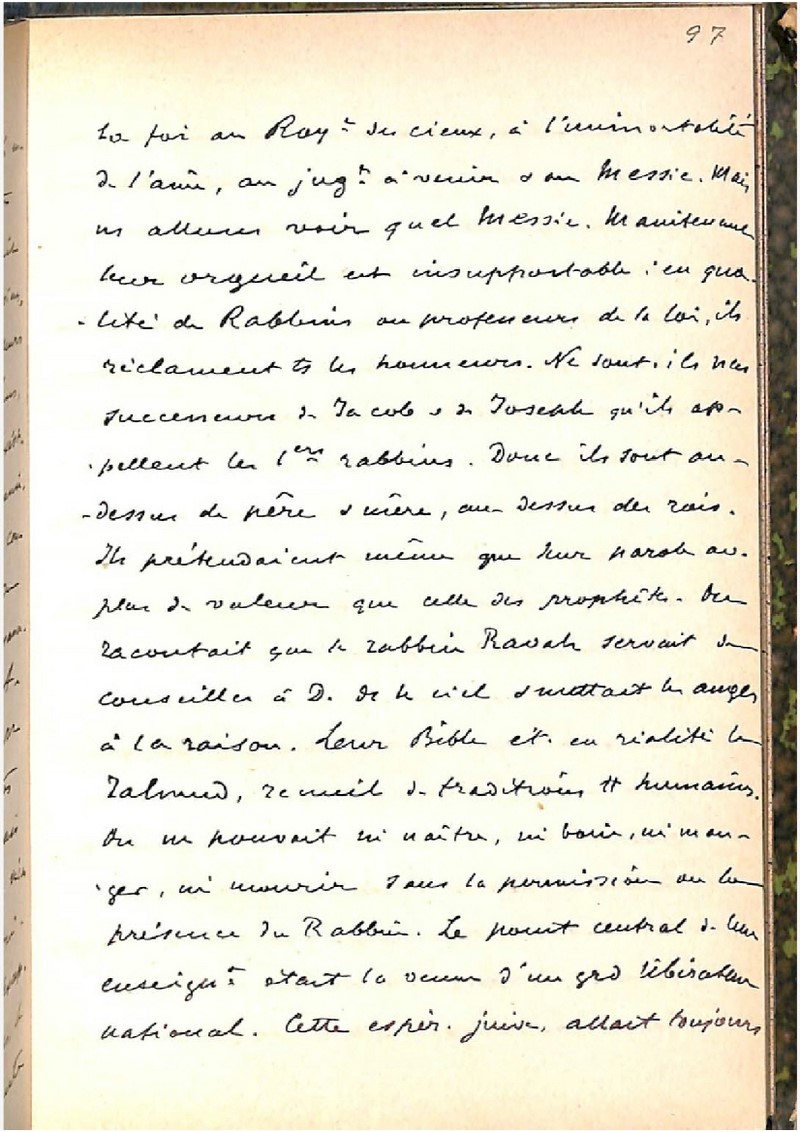 97
la foi au Roy.t des cieux, à l'immortalité
de l'âme, au jug.t à venir & au Messie. Mais
ns allons voir quel Messie. Maintenant
leur orgueil est insupportable : en qua-
-lité de Rabbins ou professeurs de la loi, ils
réclament ts les honneurs. Ne sont-ils pas
successeurs de Jacob & de Joseph qu'ils ap-
-pellent les 1ers rabbins. Donc ils sont au-
-dessus de père & mère, au dessus des rois.
Ils prétendaient même que leur parole av.
plus de valeur que celle des prophètes. On
racontait que le rabbin Ravah servait de
conseiller à D. ds le ciel & mettait les anges
à la raison. Leur Bible ét. en réalité le
Talmud, recueil de traditions tt humaines.
On ne pouvait ni naître, ni boire, ni man-
-ger, ni mourir sans la permission ou la
présence du Rabbin. Le point central de leur
enseign.t était la venue d'un grd libérateur
national. Cette espér. juive, allait toujours